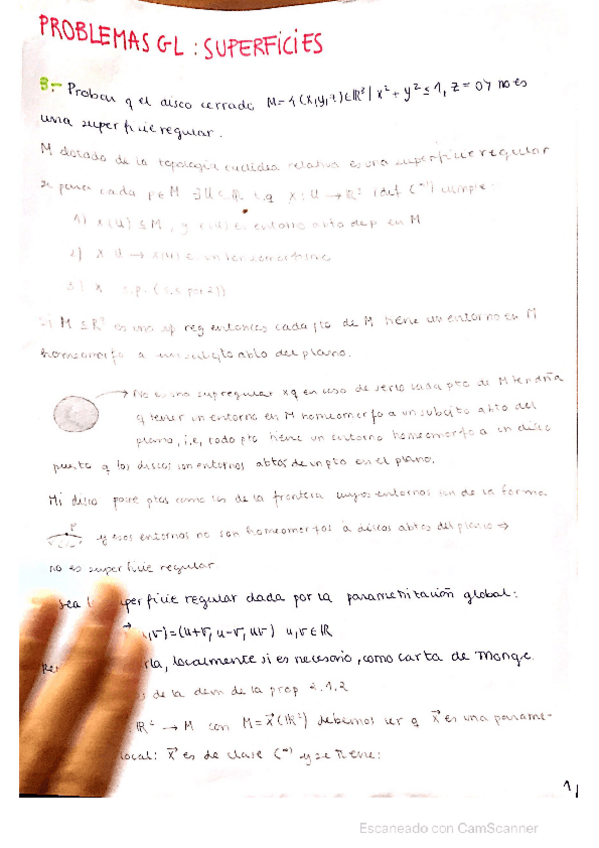 PROBLEMAS GL: SUPERFICIES
3:- Probar q el disco cerrado M={(x,y,z)∈ℝ³| x²+y²≤1, z=0} no es
una superficie regular.
M dotado de la topología euclídea relativa es una superficie regular
si para cada p∈M ∃U⊆ℝ² t.q x:U→ℝ³ (def C^∞) cumple:
1) x(U)⊆M, y x(U) es entorno abto de p en M
2) x U→x(U) es un homeomorfismo
3) x
Si M⊆ℝ³ es una sp reg entonces cada pto de M tiene un entorno en M
homeomorfo a un subcjto abto del plano.
→ No es una sup regular xq en caso de serlo cada pto de M tendría
q tener un entorno en M homeomorfo a un subcjto abto del
plano, i.e, todo pto tiene un entorno homeomorfo a un disco
puesto q los discos son entornos abtos de un pto en el plano.
Mi disco posee ptos como los de la frontera cuyos entornos son de la forma
P y esos entornos no son homeomorfos a discos abtos del plano ⇒
no es superficie regular
sea la superficie regular dada por la parametrización global:
u,v)=(u+v, u-v, uv) u,v∈ℝ
rla, localmente si es necesario, como carta de Monge.
s de la dem de la prop 2.1.2
ℝ² → M con M=x⃗(ℝ²) debemos ver q x⃗ es una parame-
local: x⃗ es de clase C^∞ y se tiene:
1
Escaneado con CamScanner